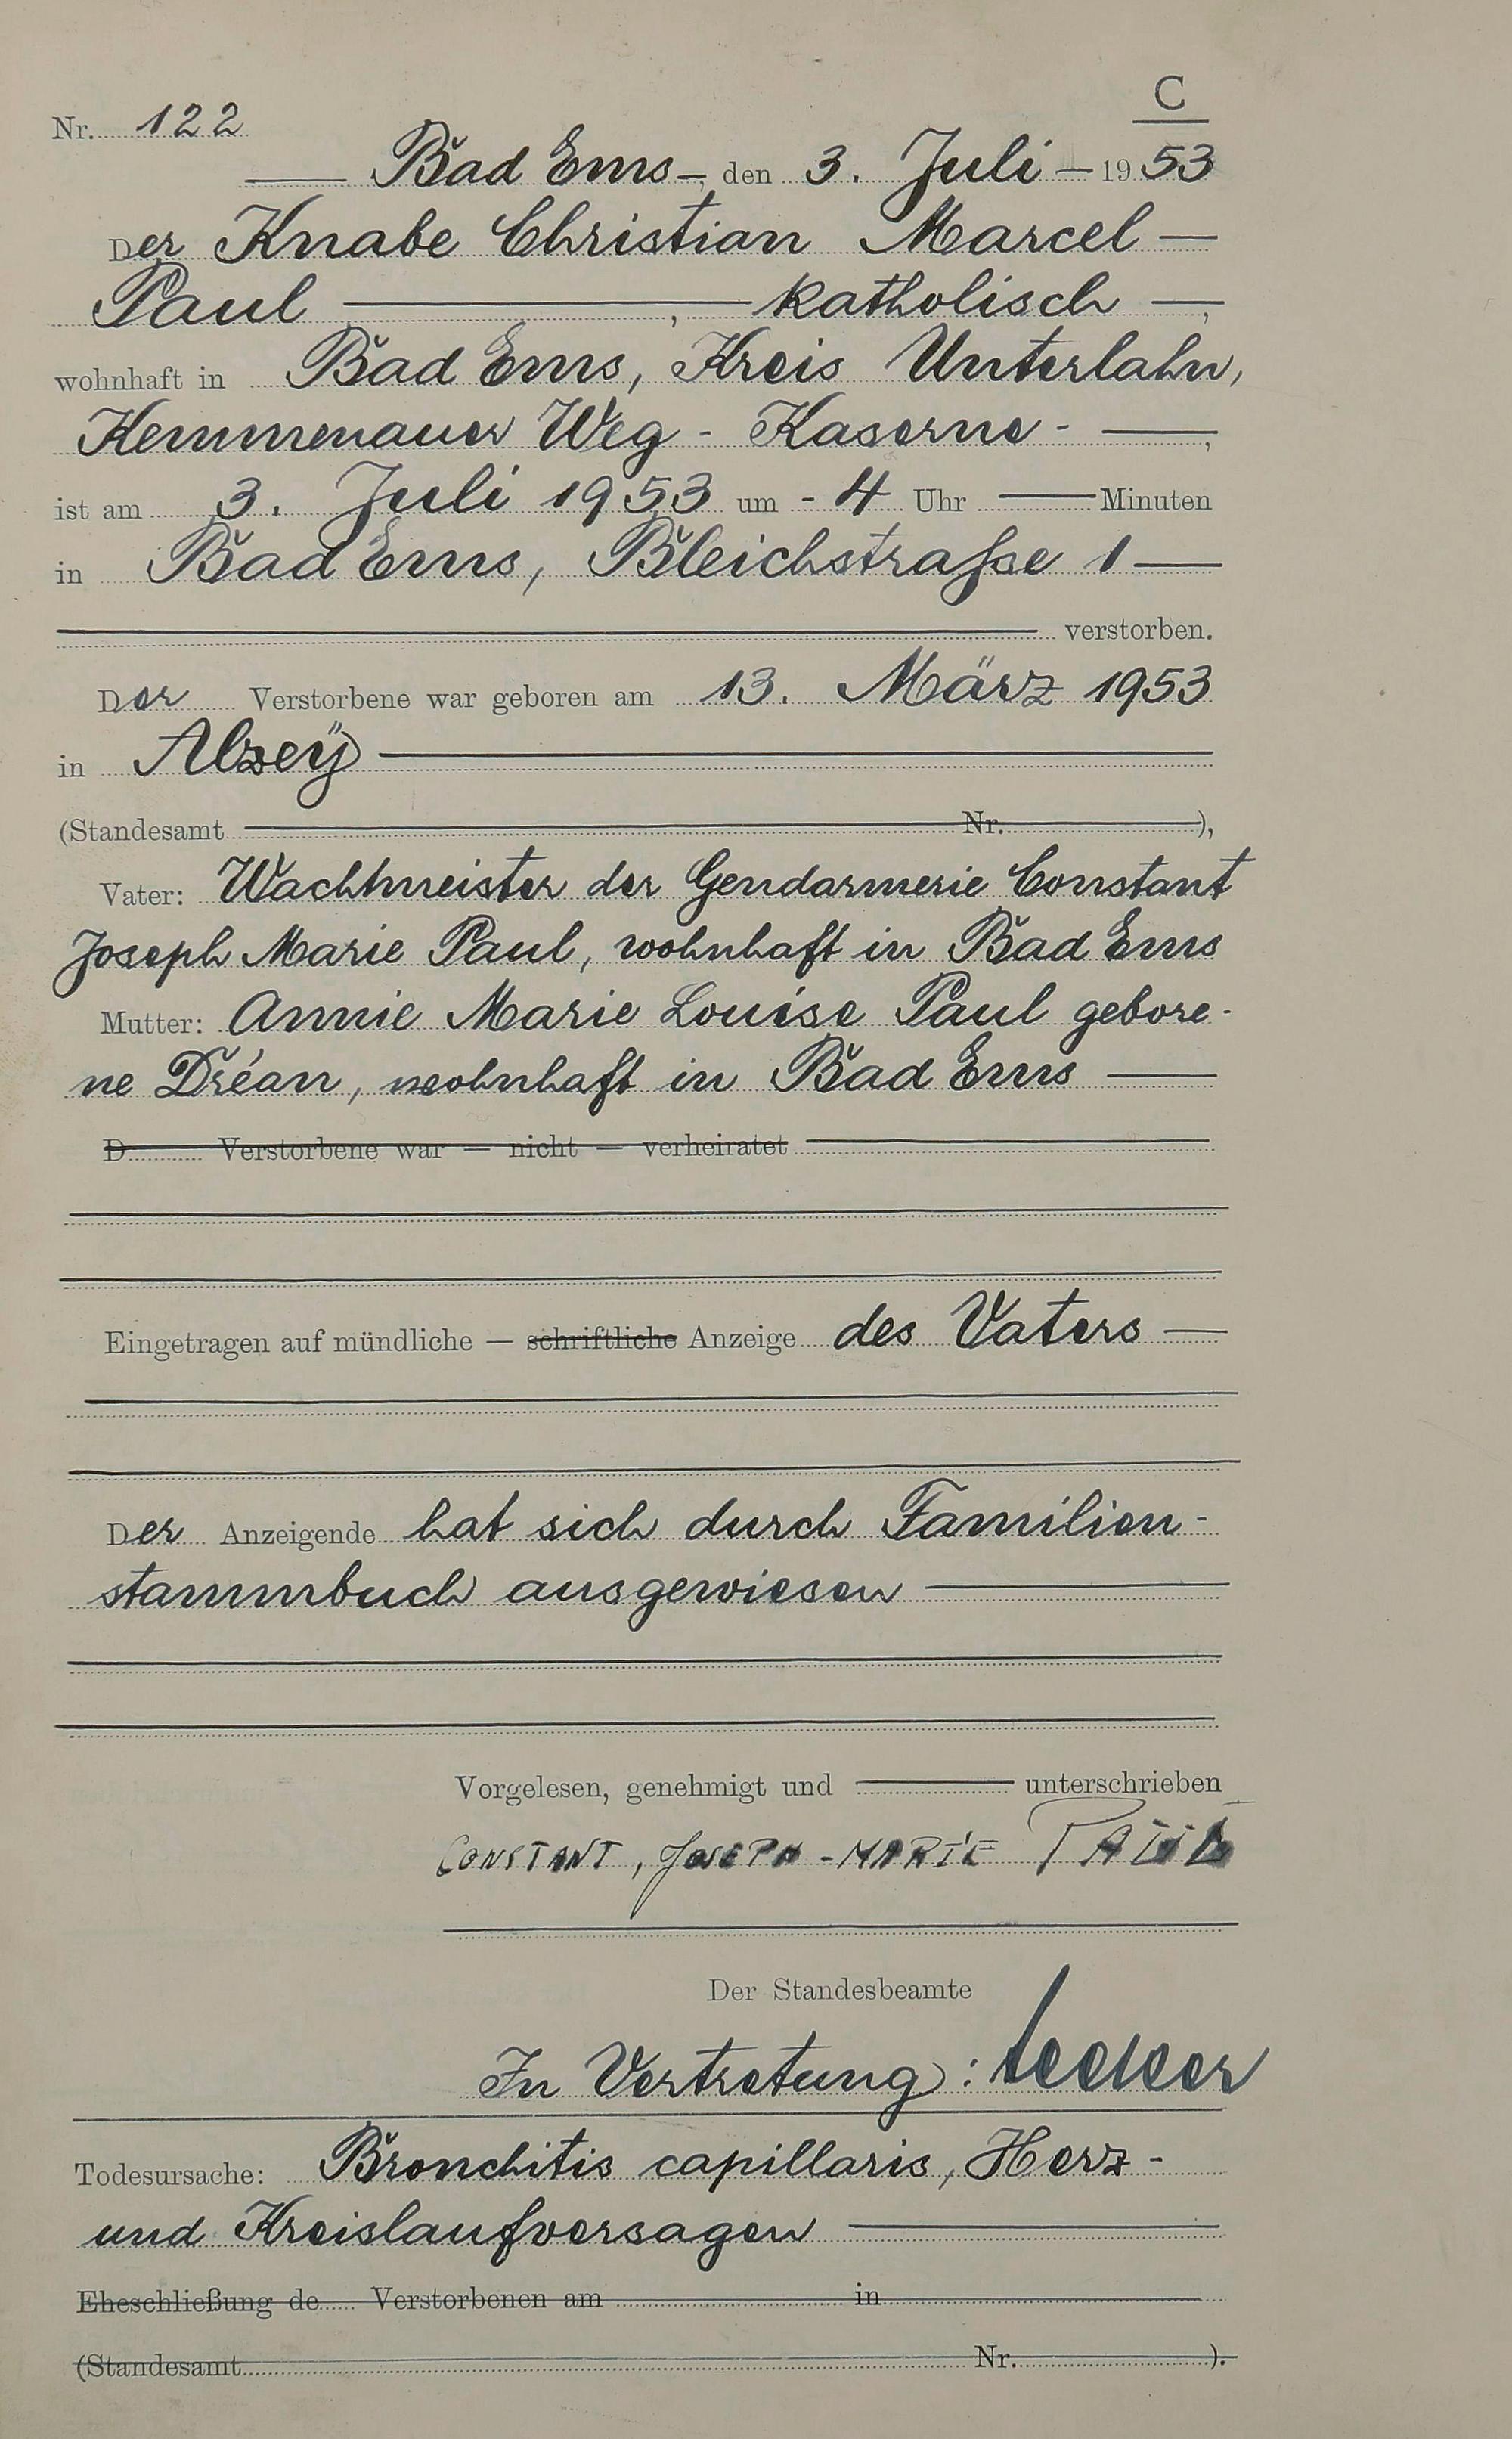 C
Nr. 122
Bad Ems, den 3. Juli 1953
Der Knabe Christian Marcel
Paul, katholisch,
wohnhaft in Bad Ems, Kreis Unterlahn,
Kemmenauer Weg - Kaserne -,
ist am 3. Juli 1953 um - 4 Uhr Minuten
in Bad Ems, Bleichstraße 1
verstorben.
Der Verstorbene war geboren am 13. März 1953
in Alzeÿ
(Standesamt Nr. ),
Vater: Wachtmeister der Gendarmerie Constant
Joseph Marie Paul, wohnhaft in Bad Ems
Mutter: Annie Marie Louise Paul gebore-
ne Dréan, wohnhaft in Bad Ems
D Verstorbene war — nicht — verheiratet
Eingetragen auf mündliche — schriftliche Anzeige des Vaters
Der Anzeigende hat sich durch Familien-
stammbuch ausgewiesen
Vorgelesen, genehmigt und unterschrieben
CONSTANT, JOSEPH-MARIE PAUL
Der Standesbeamte
In Vertretung:
Todesursache: Bronchitis capillaris, Herz-
und Kreislaufversagen
Eheschließung de Verstorbenen am in
(Standesamt Nr. ).